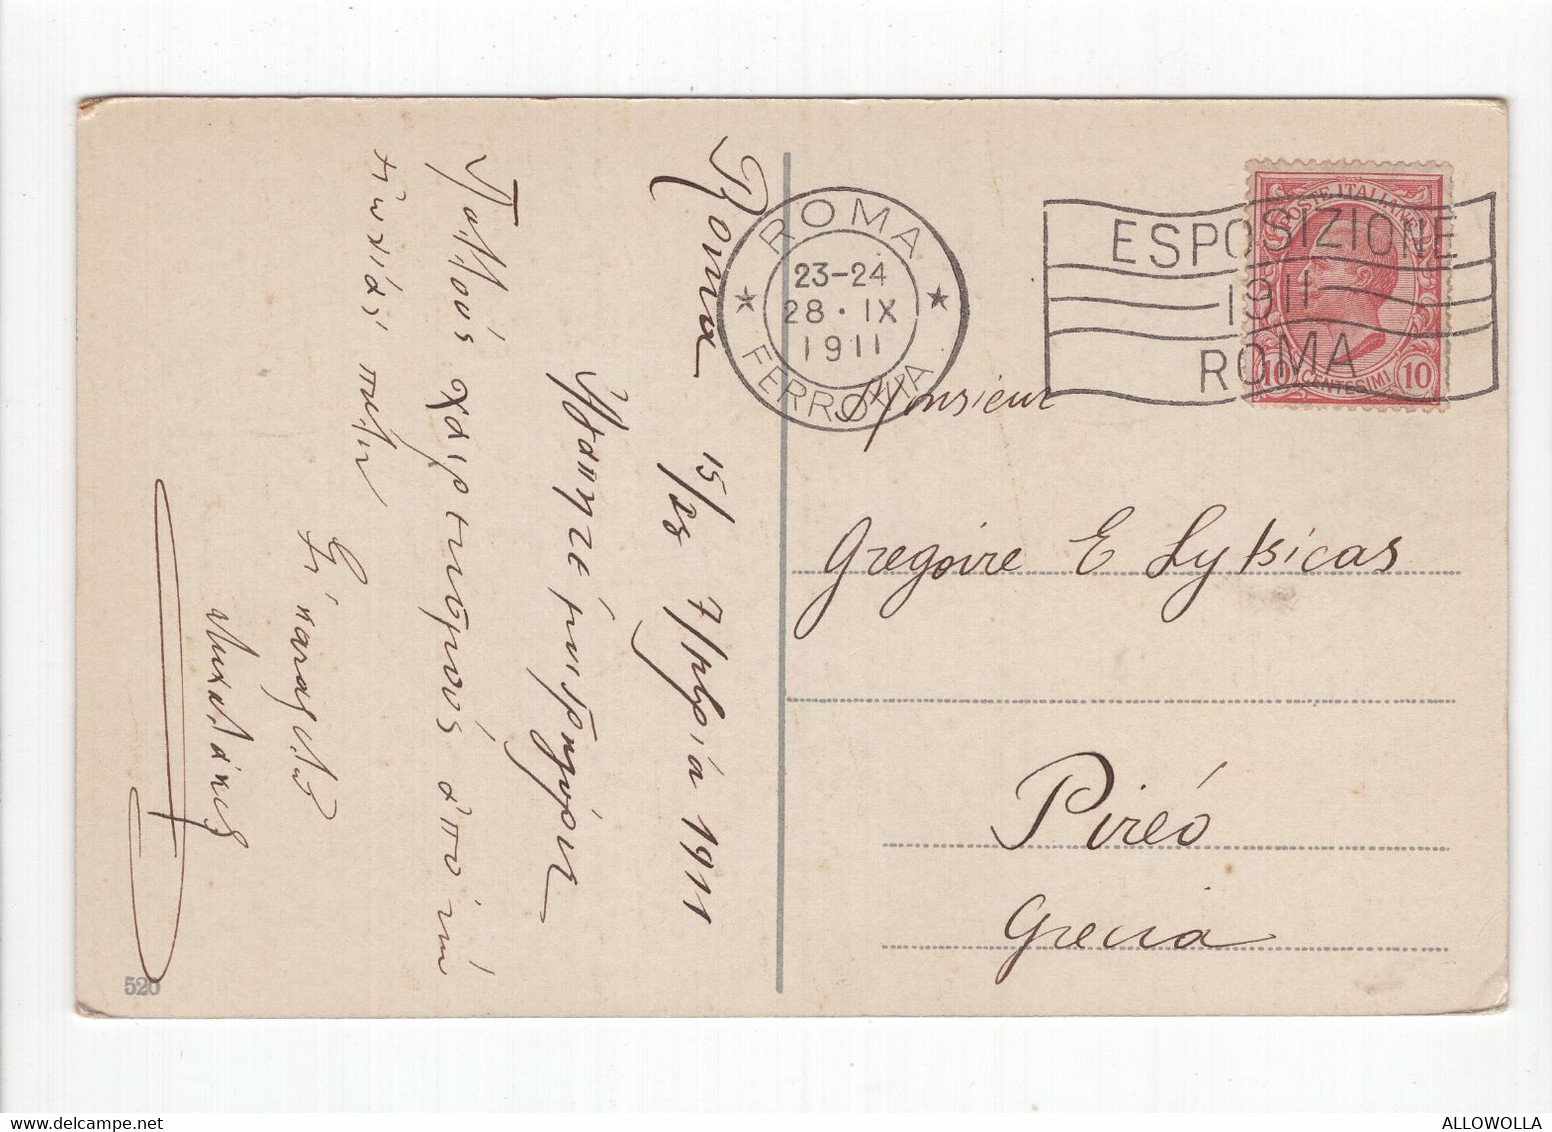 Roma 15/28 7/βρίου 1911
Ἀγαπητέ
Πολλούς χαιρετισμούς ἀπό τήν
αἰωνίαν πόλιν
ROMA
23-24
28 · IX
1911
FERROVIA
ESPOSIZIONE
1911
ROMA
POSTE ITALIANE
10 CENTESIMI 10
Monsieur
Gregoire E Lytsicas
Pireó
Grecia
520
ALLOWOLLA